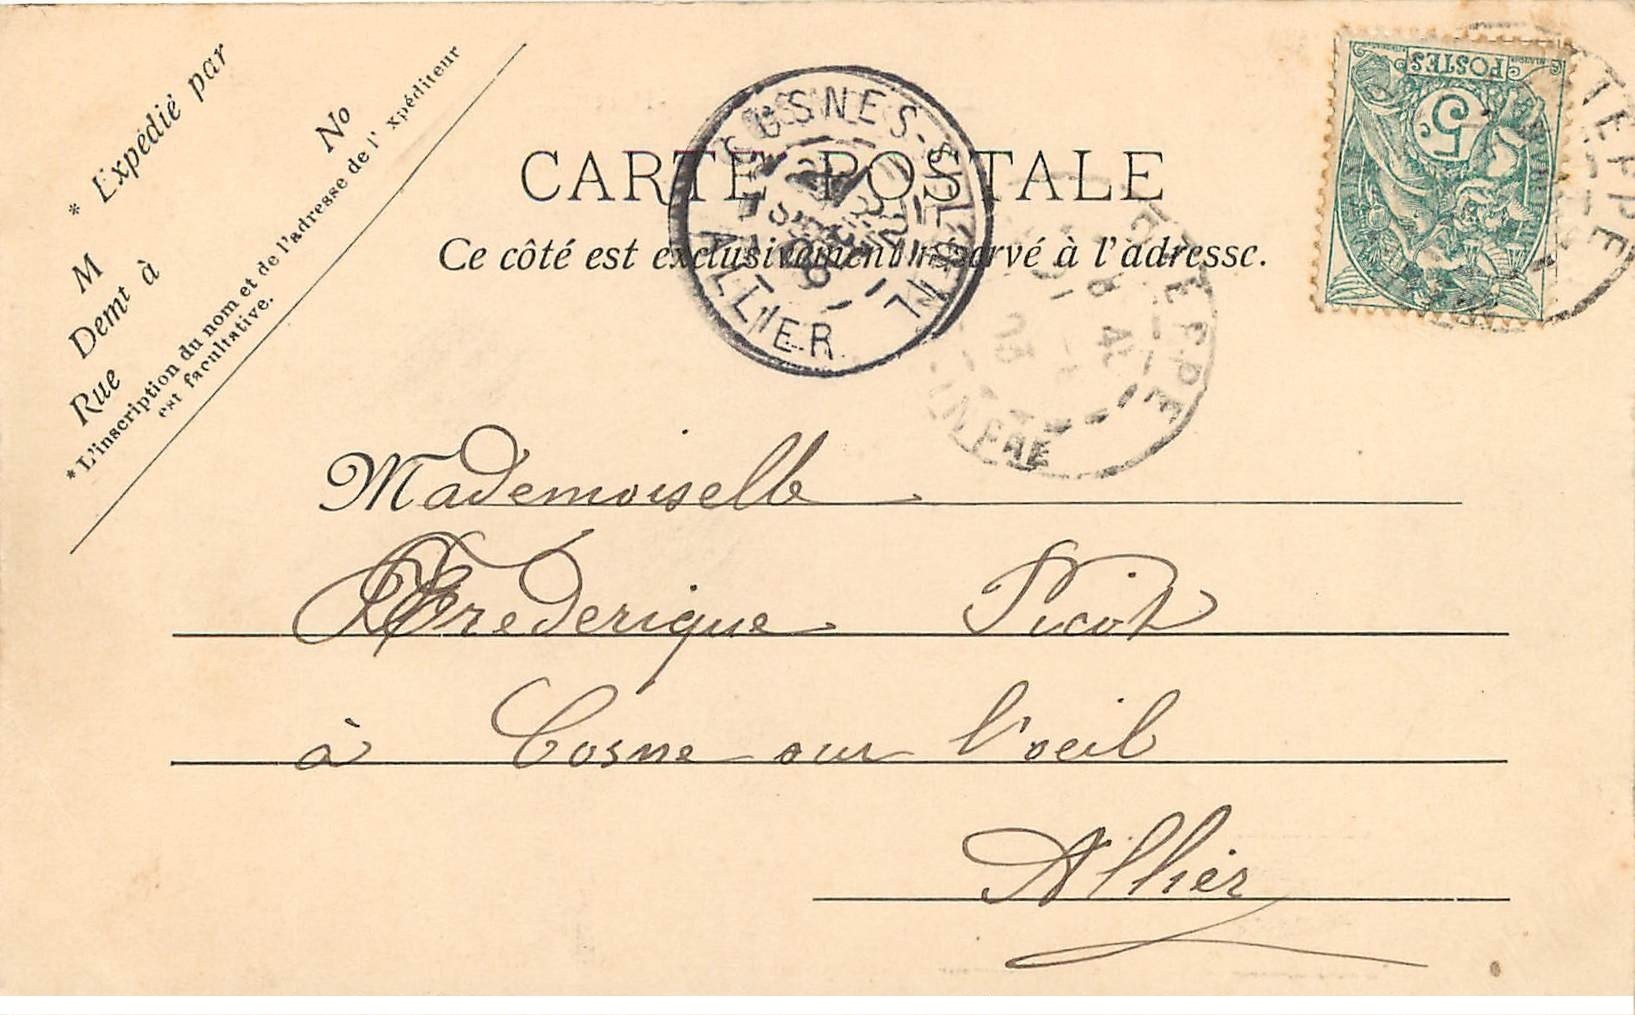 * Expédié par
M
Demt à
Rue No
* L'inscription du nom et de l'adresse de l' xpéditeur
est facultative.
CARTE POSTALE
Ce côté est exclusivement réservé à l'adresse.
POSTES
5
COSNES-SUR-L'ŒIL
ALLIER
Mademoiselle
Frederique Picot
à Cosne sur l'oeil
Allier